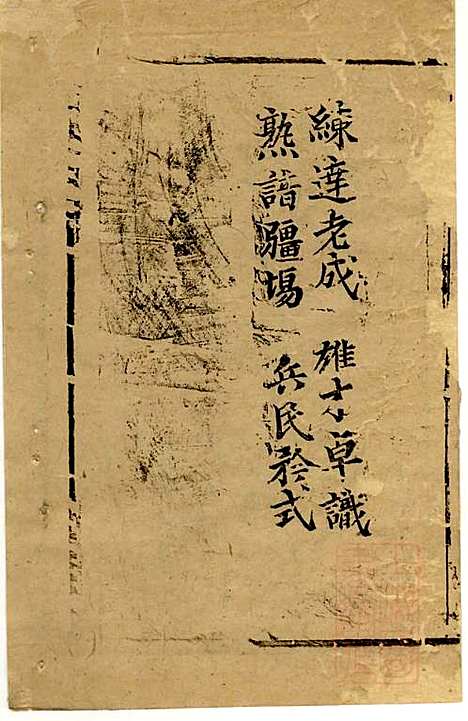 練達老成　雄才卓識
熟諳疆場　兵民矜式